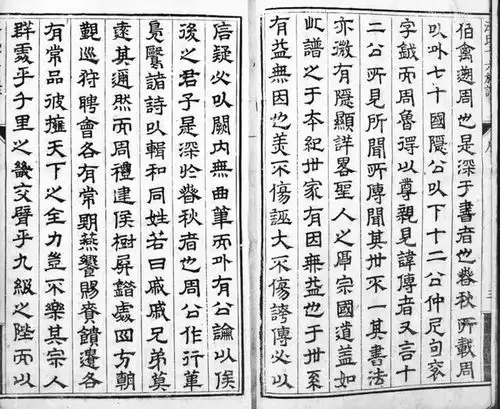 伯禽遡周也是深于書者也春秋所載周
以外七十國隱公以下十二公仲尼句袞
字鉞而周魯得以尊親見諱傳者又言十
二公所見所聞所傳聞其世不一其書法
亦微有隱顯詳畧聖人之爲宗國道蓋如
此譜之于本紀世家有因無益也于世系
有益無因也美不傷誣大不傷誇傳必以
信疑必以闕內無曲筆而外有公論以俟
後之君子是深於春秋者也周公作行葦
鳧鷖諸詩以輯和同姓若曰戚戚兄弟莫
遠其邇然而周禮建侯樹屏錯處四方朝
覲巡狩聘會各有常期燕饗賜賚饋遺各
有常品彼擁天下之全力豈不樂其宗人
群處乎千里之畿交臂乎九級之陛而以